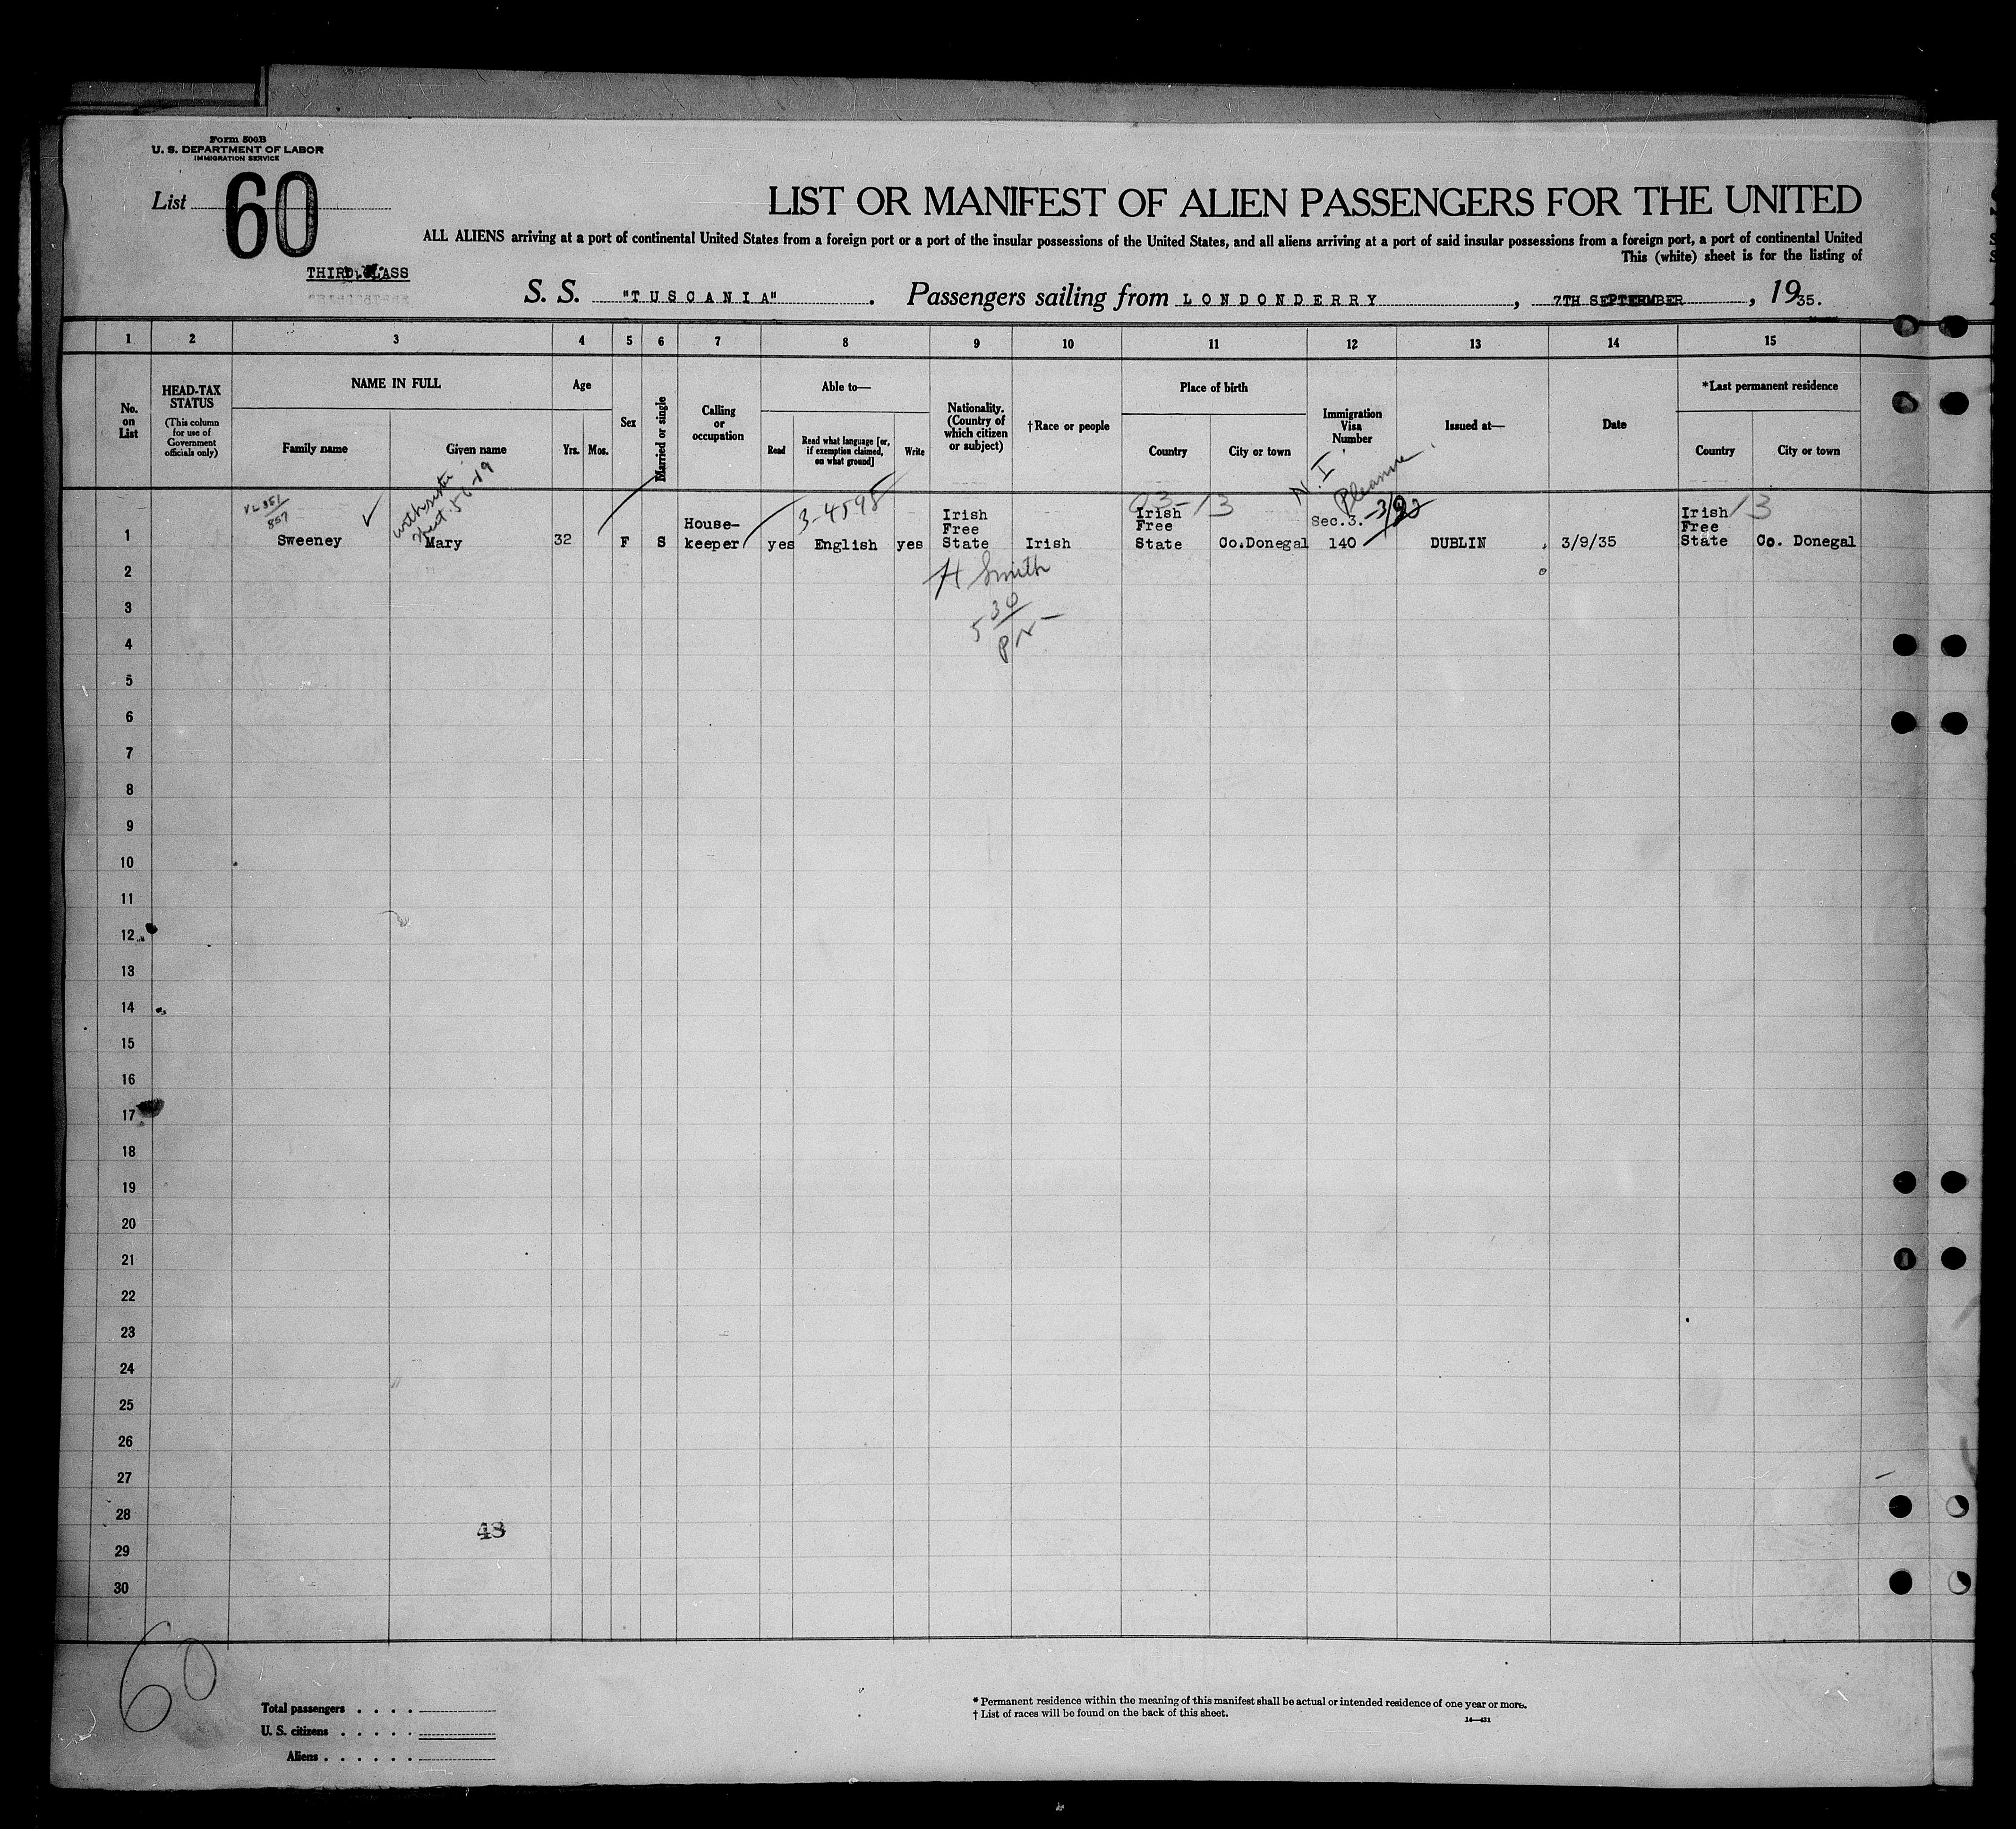 Form 500B
U. S. DEPARTMENT OF LABOR
IMMIGRATION SERVICE
List 60
LIST OR MANIFEST OF ALIEN PASSENGERS FOR THE UNITED
ALL ALIENS arriving at a port of continental United States from a foreign port or a port of the insular possessions of the United States, and all aliens arriving at a port of said insular possessions from a foreign port, a port of continental United
This (white) sheet is for the listing of
THIRD CLASS
S. S. "TUSCANIA". Passengers sailing from LONDONDERRY, 7TH SEPTEMBER, 1935.
1 2 3 4 5 6 7 8 9 10 11 12 13 14 15
No. on List
HEAD-TAX STATUS
(This column for use of Government officials only)
NAME IN FULL
Family name
Given name
Age
Yrs. Mos.
Sex
Married or single
Calling or occupation
Able to—
Read
Read what language [or, if exemption claimed, on what ground]
Write
Nationality. (Country of which citizen or subject)
†Race or people
Place of birth
Country
City or town
Immigration Visa Number
Issued at—
Date
*Last permanent residence
Country
City or town
N.I.
Pleasure
3-4598
1 Sweeney Mary 32 F S House-keeper yes English yes Irish Free State Irish Irish Free State Co.Donegal Sec.3. 140 DUBLIN 3/9/35 Irish Free State Co. Donegal
H Smith
530
PM
2
3
4
5
6
7
8
9
10
11
12
13
14
15
16
17
18
19
20
21
22
23
24
25
26
27
28
48
29
30
60
Total passengers
U. S. citizens
Aliens
* Permanent residence within the meaning of this manifest shall be actual or intended residence of one year or more.
† List of races will be found on the back of this sheet.
14—431